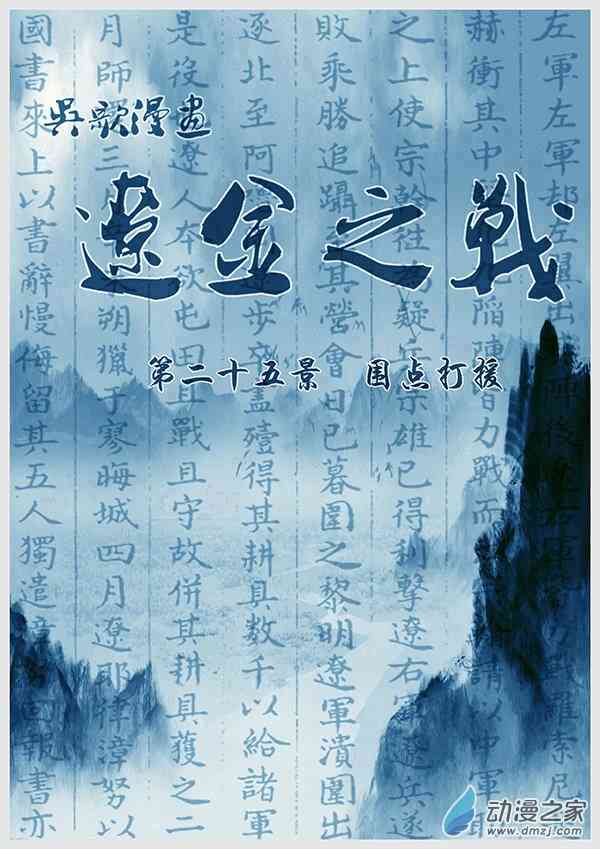 吳歌漫畫
遼金之戰
第二十五景 围点打援
左軍左軍却左軍出陣後
赫衝其中陷陣皆力戰而
之上使宗幹往為疑兵宗雄已得利擊遼右軍遼兵遂
敗乘勝追躡至其營會日已暮圍之黎明遼軍潰圍出
逐北至阿步卒盡殪得其耕具数千以給諸軍
是役遼人本欲屯田且戰且守故併其耕具獲之二
月師三朔獵于寥晦城四月遼耶律漳努以
國書來上以書辭慢侮留其五人獨遣回報書亦
动漫之家
www.dmzj.com